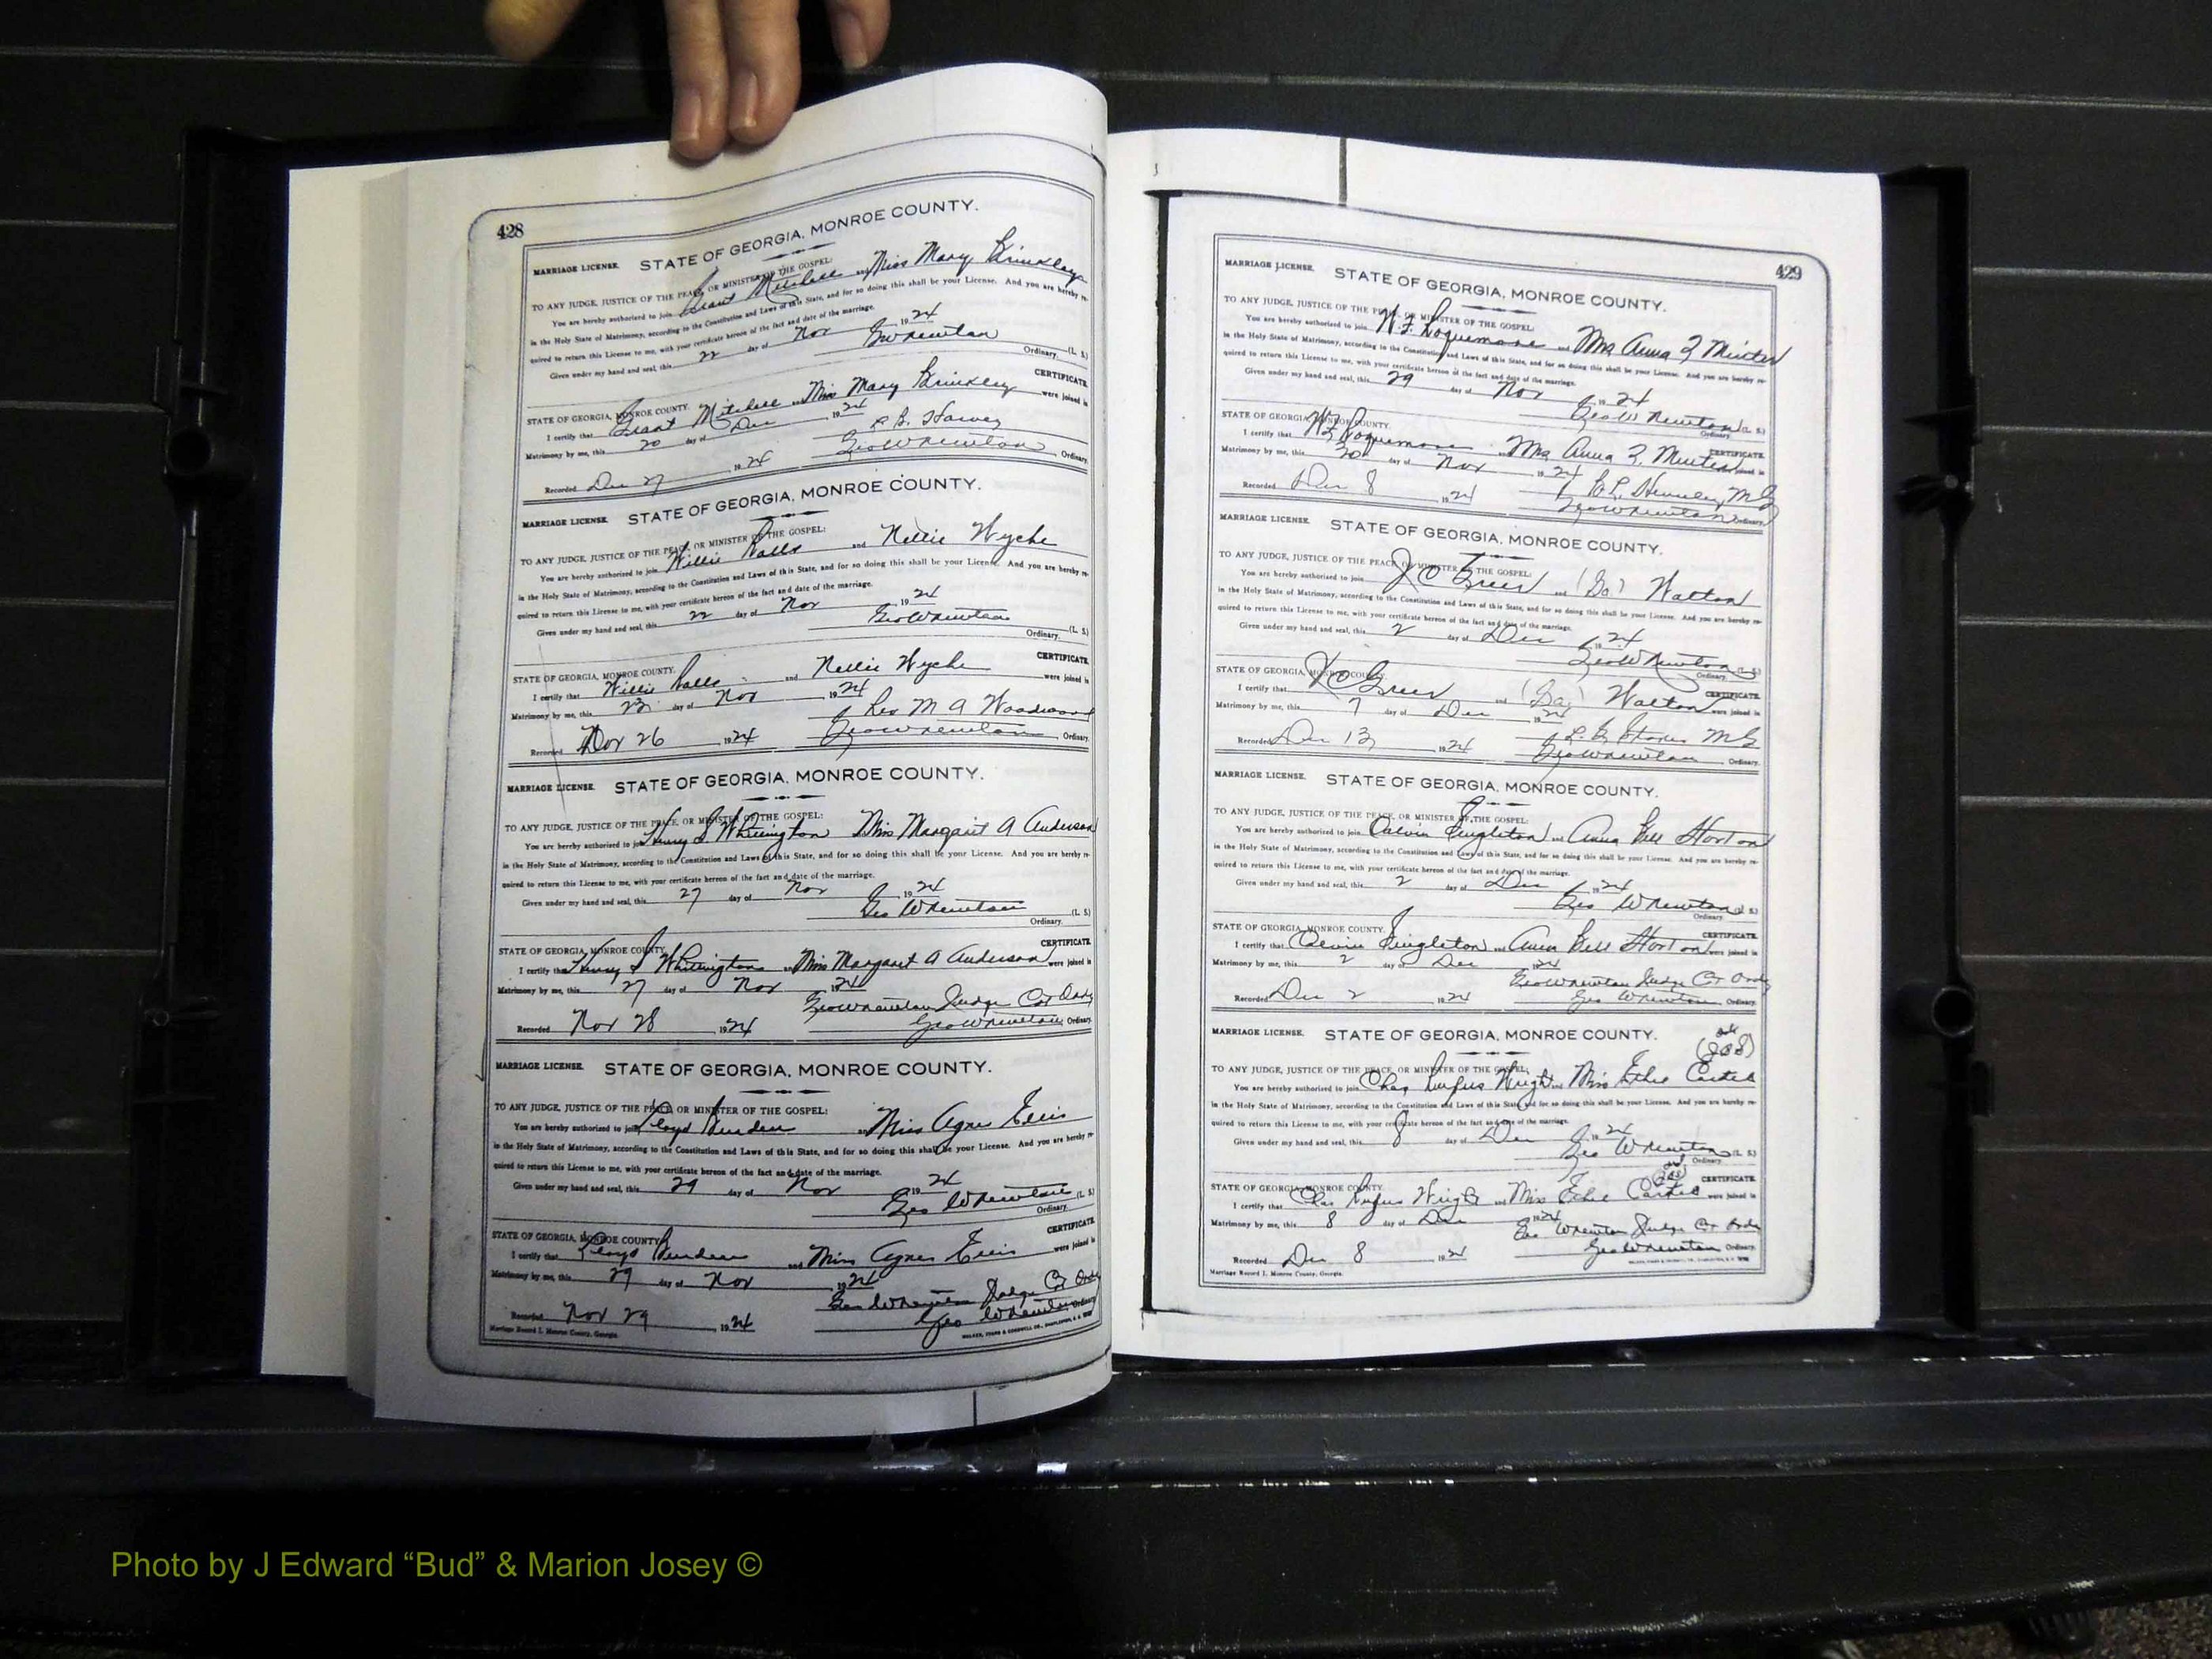 428
MARRIAGE LICENSE. STATE OF GEORGIA, MONROE COUNTY.
TO ANY JUDGE, JUSTICE OF THE PEACE, OR MINISTER OF THE GOSPEL:
You are hereby authorized to join Grant Mitchell and Miss Mary Brinkley
in the Holy State of Matrimony, according to the Constitution and Laws of this State, and for so doing this shall be your License. And you are hereby re-
quired to return this License to me, with your certificate hereon of the fact and date of the marriage.
Given under my hand and seal, this 22 day of Nov 1924
Geo W Newton (L. S.)
Ordinary.
CERTIFICATE.
STATE OF GEORGIA, MONROE COUNTY.
I certify that Grant Mitchell and Miss Mary Brinkley were joined in
Matrimony by me, this 20 day of Dec 1924
Recorded Dec 27 1924 Geo W Newton Ordinary.
MARRIAGE LICENSE. STATE OF GEORGIA, MONROE COUNTY.
TO ANY JUDGE, JUSTICE OF THE PEACE, OR MINISTER OF THE GOSPEL:
You are hereby authorized to join Willie and Nellie Wyche
in the Holy State of Matrimony, according to the Constitution and Laws of this State, and for so doing this shall be your License. And you are hereby re-
quired to return this License to me, with your certificate hereon of the fact and date of the marriage.
Given under my hand and seal, this 22 day of Nov 1924
Geo W Newton (L. S.)
Ordinary.
CERTIFICATE.
STATE OF GEORGIA, MONROE COUNTY.
I certify that Willie and Nellie Wyche were joined in
Matrimony by me, this 23 day of Nov 1924
Rev M A Woodward
Recorded Nov 26 1924 Geo W Newton Ordinary.
MARRIAGE LICENSE. STATE OF GEORGIA, MONROE COUNTY.
TO ANY JUDGE, JUSTICE OF THE PEACE, OR MINISTER OF THE GOSPEL:
You are hereby authorized to join Henry S Whittington Miss Margaret A Anderson
in the Holy State of Matrimony, according to the Constitution and Laws of this State, and for so doing this shall be your License. And you are hereby re-
quired to return this License to me, with your certificate hereon of the fact and date of the marriage.
Given under my hand and seal, this 27 day of Nov 1924
Geo W Newton (L. S.)
Ordinary.
CERTIFICATE.
STATE OF GEORGIA, MONROE COUNTY.
I certify that Henry S Whittington and Miss Margaret A Anderson were joined in
Matrimony by me, this 27 day of Nov 1924
Geo W Newton Judge Ct Ordy
Recorded Nov 28 1924 Geo W Newton Ordinary.
MARRIAGE LICENSE. STATE OF GEORGIA, MONROE COUNTY.
TO ANY JUDGE, JUSTICE OF THE PEACE, OR MINISTER OF THE GOSPEL:
You are hereby authorized to join Lloyd Burden and Miss Agnes Ellis
in the Holy State of Matrimony, according to the Constitution and Laws of this State, and for so doing this shall be your License. And you are hereby re-
quired to return this License to me, with your certificate hereon of the fact and date of the marriage.
Given under my hand and seal, this 29 day of Nov 1924
Geo W Newton (L. S.)
Ordinary.
CERTIFICATE.
STATE OF GEORGIA, MONROE COUNTY.
I certify that Lloyd Burden and Miss Agnes Ellis were joined in
Matrimony by me, this 29 day of Nov 1924
Geo W Newton Judge Ct Ordy
Recorded Nov 29 1924 Geo W Newton Ordinary.
Marriage Record I. Monroe County, Georgia.
WALKER, EVANS & COGSWELL CO., CHARLESTON, S. C.
429
MARRIAGE LICENSE. STATE OF GEORGIA, MONROE COUNTY.
TO ANY JUDGE, JUSTICE OF THE PEACE, OR MINISTER OF THE GOSPEL:
You are hereby authorized to join Roquemore and Mrs Anna Minter
in the Holy State of Matrimony, according to the Constitution and Laws of this State, and for so doing this shall be your License. And you are hereby re-
quired to return this License to me, with your certificate hereon of the fact and date of the marriage.
Given under my hand and seal, this 29 day of Nov 1924
Geo W Newton (L. S.)
Ordinary.
CERTIFICATE.
STATE OF GEORGIA, MONROE COUNTY.
I certify that Roquemore Mrs Anna Minter were joined in
Matrimony by me, this 30 day of Nov 1924
Recorded Dec 8 1924 Geo W Newton Ordinary.
MARRIAGE LICENSE. STATE OF GEORGIA, MONROE COUNTY.
TO ANY JUDGE, JUSTICE OF THE PEACE, OR MINISTER OF THE GOSPEL:
You are hereby authorized to join J C Greer and (Ga) Walton
in the Holy State of Matrimony, according to the Constitution and Laws of this State, and for so doing this shall be your License. And you are hereby re-
quired to return this License to me, with your certificate hereon of the fact and date of the marriage.
Given under my hand and seal, this 2 day of Dec 1924
Geo W Newton (L. S.)
Ordinary.
CERTIFICATE.
STATE OF GEORGIA, MONROE COUNTY.
I certify that J C Greer and (Ga) Walton were joined in
Matrimony by me, this 7 day of Dec 1924
Recorded Dec 13 1924 Geo W Newton Ordinary.
MARRIAGE LICENSE. STATE OF GEORGIA, MONROE COUNTY.
TO ANY JUDGE, JUSTICE OF THE PEACE, OR MINISTER OF THE GOSPEL:
You are hereby authorized to join Calvin Singleton and Anna Bell Horton
in the Holy State of Matrimony, according to the Constitution and Laws of this State, and for so doing this shall be your License. And you are hereby re-
quired to return this License to me, with your certificate hereon of the fact and date of the marriage.
Given under my hand and seal, this 2 day of Dec 1924
Geo W Newton (L. S.)
Ordinary.
CERTIFICATE.
STATE OF GEORGIA, MONROE COUNTY.
I certify that Calvin Singleton and Anna Bell Horton were joined in
Matrimony by me, this 2 day of Dec 1924
Geo W Newton Judge Ct Ordy
Recorded Dec 2 1924 Geo W Newton Ordinary.
MARRIAGE LICENSE. STATE OF GEORGIA, MONROE COUNTY.
TO ANY JUDGE, JUSTICE OF THE PEACE, OR MINISTER OF THE GOSPEL:
You are hereby authorized to join Chas Rufus Wright and Miss Ethel Carter
in the Holy State of Matrimony, according to the Constitution and Laws of this State, and for so doing this shall be your License. And you are hereby re-
quired to return this License to me, with your certificate hereon of the fact and date of the marriage.
Given under my hand and seal, this 8 day of Dec 1924
Geo W Newton (L. S.)
Ordinary.
CERTIFICATE.
STATE OF GEORGIA, MONROE COUNTY.
I certify that Chas Rufus Wright and Miss Ethel Carter were joined in
Matrimony by me, this 8 day of Dec 1924
Geo W Newton Judge Ct Ordy
Recorded Dec 8 1924 Geo W Newton Ordinary.
Marriage Record I. Monroe County, Georgia.
Photo by J Edward “Bud” & Marion Josey ©